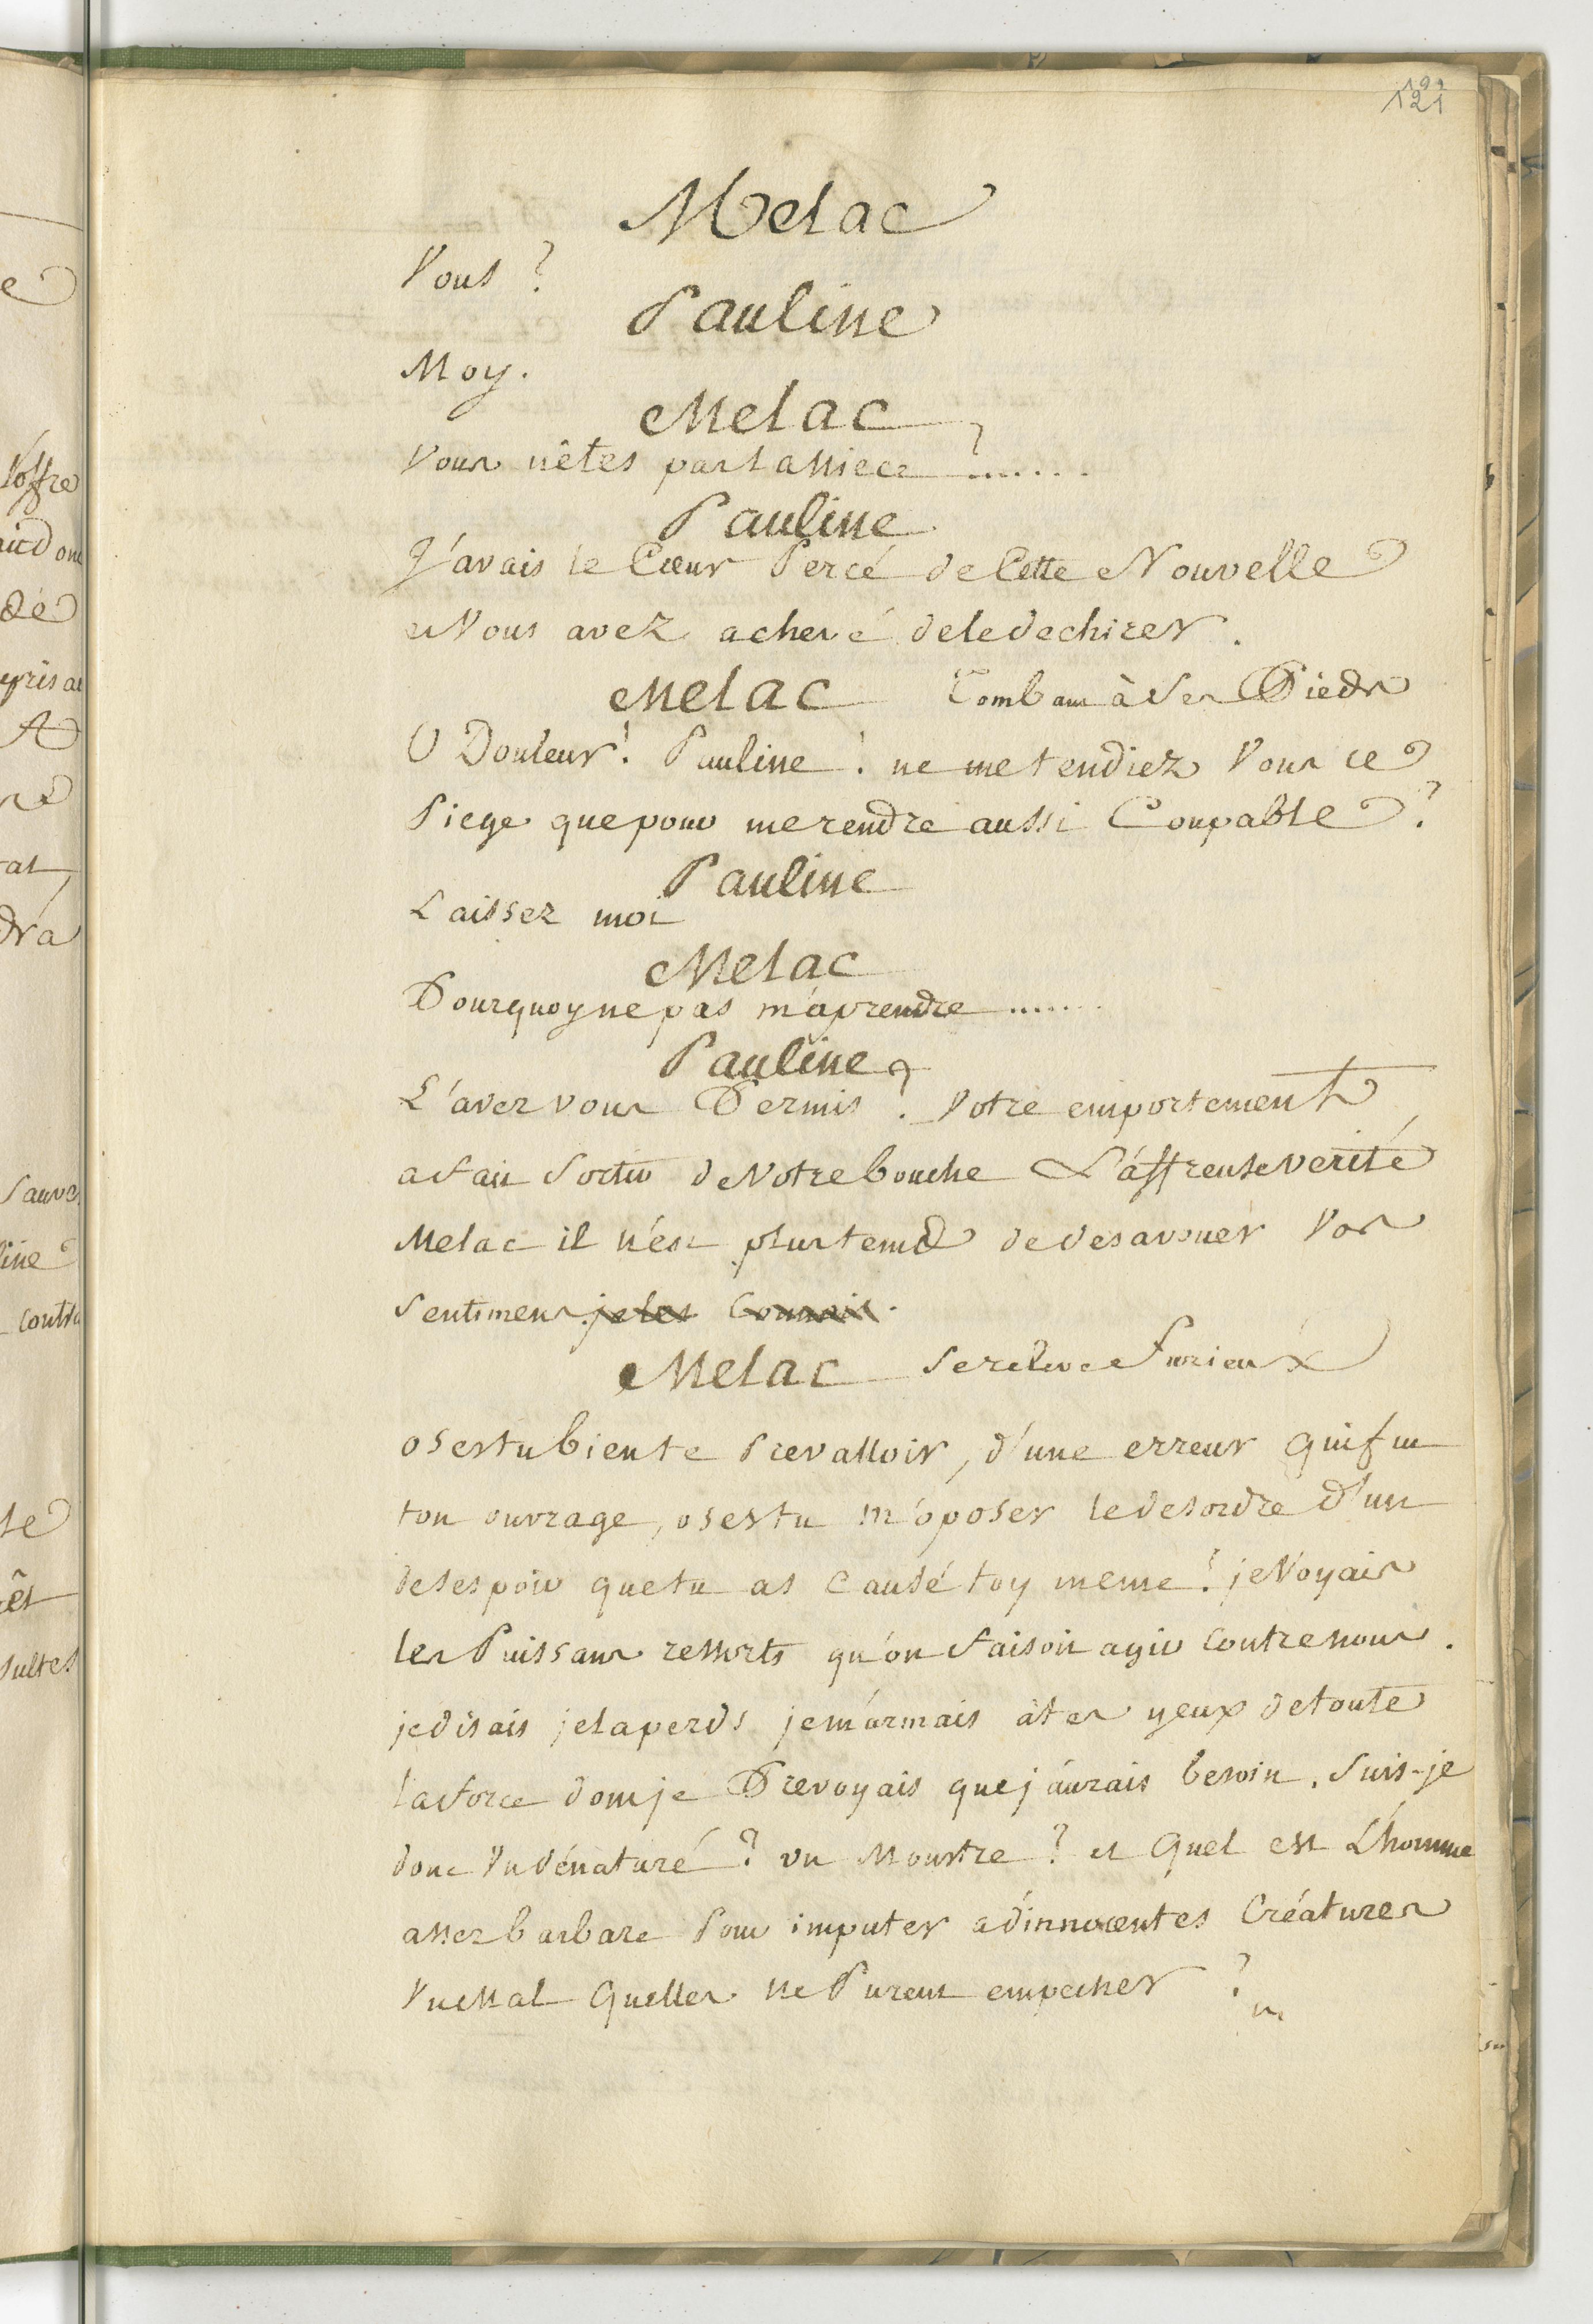 121
Melac
Vous ?
Pauline
Moy.
Melac
Vous nêtes pas la niece ? ......
Pauline
J'avais le Cœur Percé de Cette Nouvelle
et Vous avez achevé de le dechirer.
Melac Tombant à Ses Pieds
O Douleur ! Pauline ! ne me tendiez Vous ce
Piege que pour me rendre aussi Coupable ?
Pauline
Laissez moi
Melac
Pourquoy ne pas m'aprendre ......
Pauline
L'avez vous Permis ? Votre emportement
a fait Sortir de Votre bouche L'affreuse verité
Melac il n'est plus tems de desavouer Vos
Sentimens je les Connois.
Melac Se releve Furieux
oses tu bien te Prevalloir, d'une erreur qui fut
ton ouvrage, oses tu m'oposer le desordre d'un
desespoir que tu as Causé toy meme ? je Voyais
les Puissans ressorts qu'on faisoit agir contre nous.
je disais je la perds je m'armais à tes yeux de toute
la force dont je Prevoyais que j'aurais besoin. Suis-je
donc Un dénaturé ? un Monstre ? et Quel est L'homme
assez barbare Pour imputer a d'innocentes Créatures
Un Mal Quelles ne Purent empecher ?
Voffre
dé
pris
A
Sauve
line
Contr
sultes